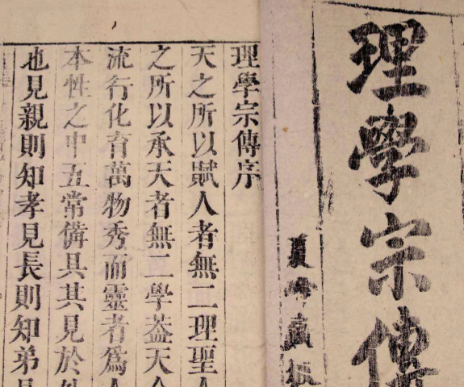 理學宗傳
理學宗傳序
天之所以賦人者無二理聖人
之所以承天者無二學葢天人
流行化育萬物秀而靈者爲人
本性之中五常僃具其見於
也見親則知孝見長則知弟見